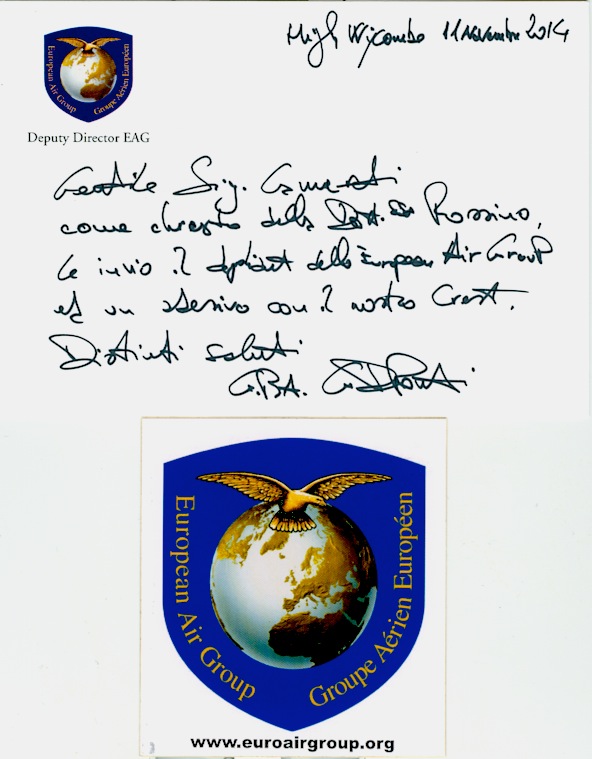 High Wycombe 11 Novembre 2014
European Air Group
Groupe Aérien Européen
Deputy Director EAG
Gentile Sig.
come chiesto dalla Dott.ssa Rossino,
Le invio il depliant dello European Air Group
ed un adesivo con il nostro Crest.
Distinti saluti
G.B.A.
European Air Group
Groupe Aérien Européen
www.euroairgroup.org